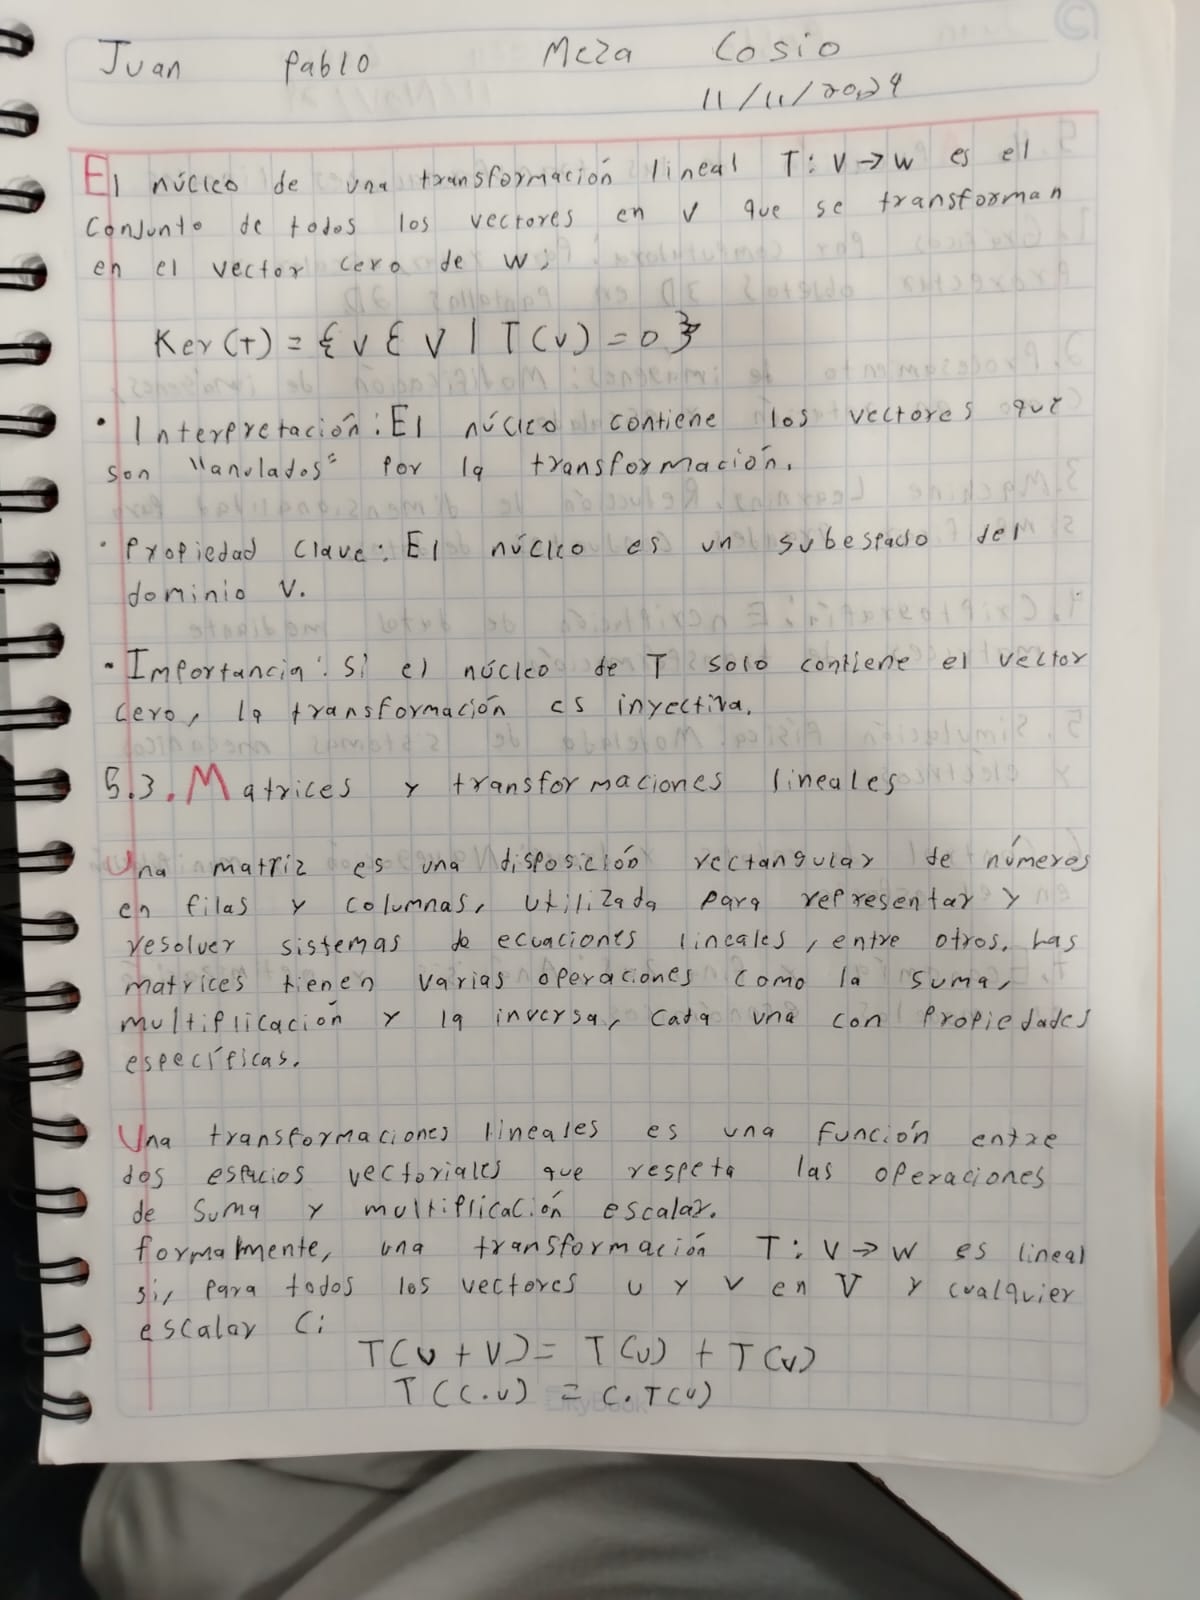 Juan Pablo Meza Cosio
11/11/2024
El núcleo de una transformación lineal T: V→W es el
conjunto de todos los vectores en V que se transforman
en el vector cero de W:
Ker(T) = {v ε V | T(v) = 0}
• Interpretación: El núcleo contiene los vectores que
son "anulados" por la transformación.
• Propiedad clave: El núcleo es un subespacio del
dominio V.
• Importancia: Si el núcleo de T solo contiene el vector
cero, la transformación es inyectiva.
5.3. Matrices y transformaciones lineales
Una matriz es una disposición rectangular de números
en filas y columnas, utilizada para representar y
resolver sistemas de ecuaciones lineales, entre otros. Las
matrices tienen varias operaciones como la suma,
multiplicación y la inversa, cada una con propiedades
específicas.
Una transformaciones lineales es una función entre
dos espacios vectoriales que respeta las operaciones
de suma y multiplicación escalar.
formalmente, una transformación T: V→W es lineal
si, para todos los vectores u y v en V y cualquier
escalar C:
T(u + v) = T(u) + T(v)
T(c.u) = c.T(u)